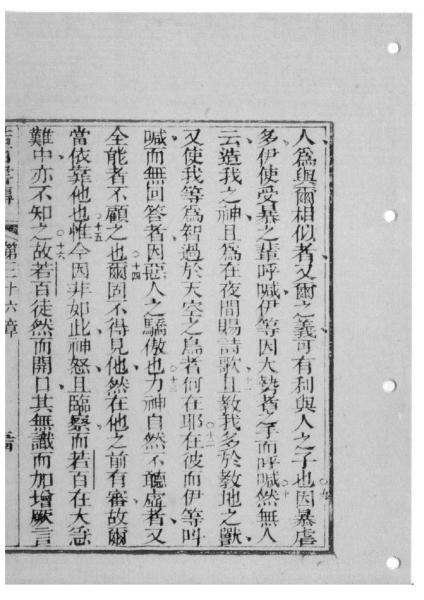 人爲與爾相似者又爾之義可有利與人之子也○九因暴虐
多伊使受暴之輩呼喊伊等因大勢者之手而呼喊○十然無人
云造我之神且爲在夜間賜詩歌○十一且教我多於教地之獸
又使我等爲智過於天空之鳥者何在耶○十二在彼而伊等呌
喊而無回答者因惡人之驕傲也○十三力神自然不聽虛者又
全能者不顧之也○十四爾固不得見他然在他之前有審故爾
當依靠他也○十五惟今因非如此神怒且臨察而若百在大急
難中亦不知之○十六故若百徒然而開口其無識而加增厥言
第三十六章